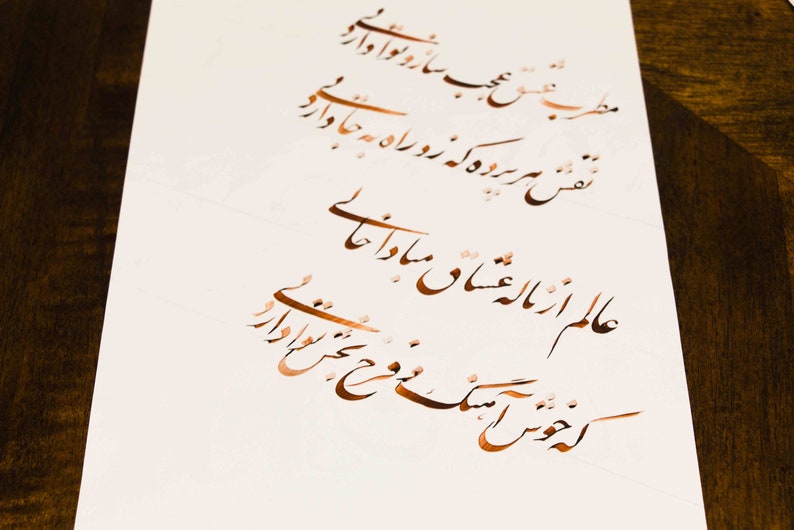 مطرب عشق عجب ساز و نوا دارد
نقش هر پرده که زد راه به جا دارد
عالم از ناله عشاق مبادا خالی
که خوش آهنگ و فرح بخش نوا دارد